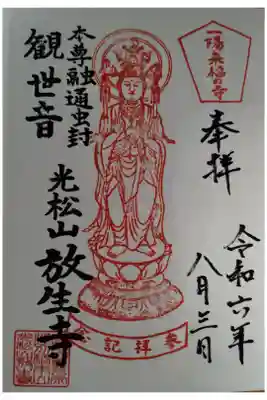 一陽来福の寺
奉拝
令和六年
八月三日
本尊融通虫封
観世音
光松山
放生寺
參拝記念